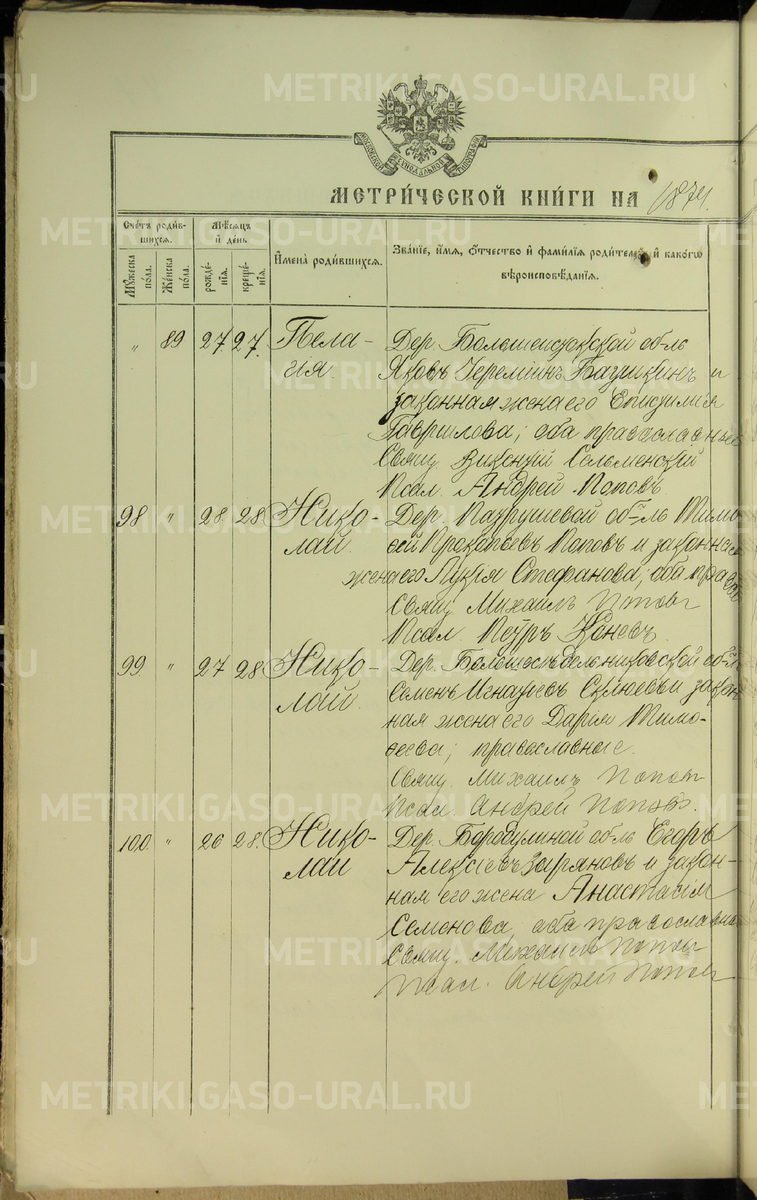 МЕТРИЧЕСКОЙ КНИГИ НА 1874.
Счетъ родив-
шихся.
Мѣсяцъ
и день
Имена родившихся.
Званіе, имя, отчество и фамилія родителей, и какого
вѣроисповѣданія.
Мужеска
пола.
Женска
пола.
рожде-
нія.
креще-
нія.
" 89 27 27. Пела-
гія.
Дер. обль
Яковъ и
законная жена его
Гаврилова; оба православные
Свящ. Сельменскій
Псал. Андрей Поповъ
98 " 28 28 Нико-
лай.
Дер. Патрушевой об-ль Тимо-
фей Прокопьевъ Поповъ и законная
жена его Лукія Стефанова; оба правосл
Свящ. Михаилъ Поповъ
Псал. Петръ Коневъ.
99 " 27 28 Нико-
лай.
Дер. Большеседельниковской об-ль
Семенъ Игнатьевъ и закон
ная жена его Дарія Тимо-
феева; православные.
Свящ. Михаилъ Поповъ
Псал. Андрей Поповъ.
100 " 26 28. Нико-
лай
Дер. Бородулиной обль Егоръ
Алексіевъ Зыряновъ и закон-
ная его жена Анастасія
Семенова, оба православные
Свящ. Михаилъ Поповъ
Псал. Андрей Поповъ
METRIKI.GASO-URAL.RU